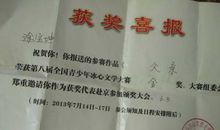 获奖喜报
祝贺你！你报送的参赛作品《父亲
荣获第八届全国青少年冰心文学大赛 金 奖，大赛组委
郑重邀请你作为获奖代表赴京参加颁奖大会。
（时间：2013年7月14日-17日 参会须知及日程安排随后）